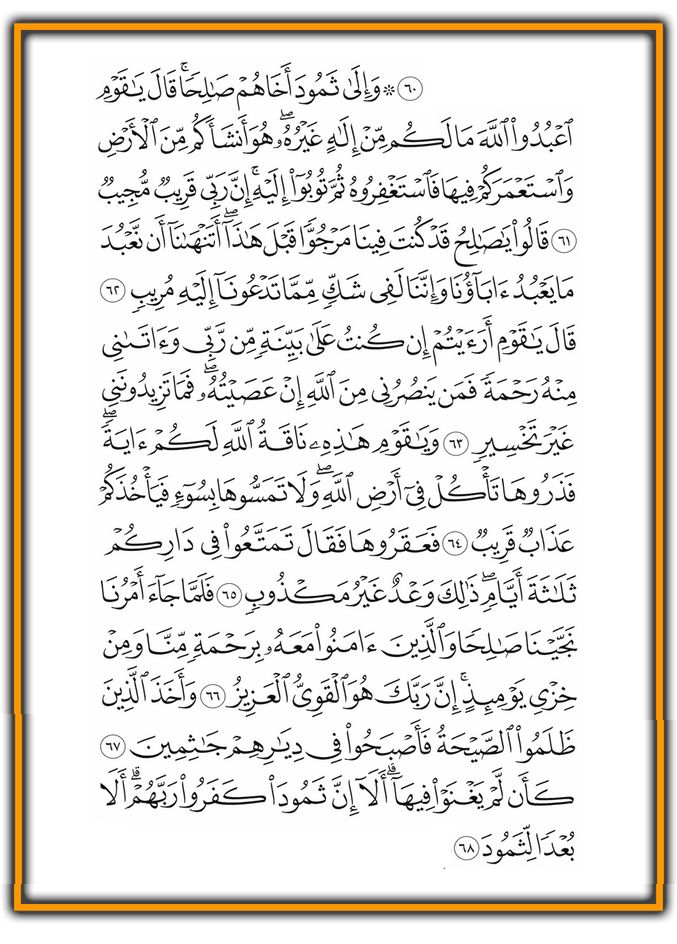 ٦٠ ۞ وَإِلَىٰ ثَمُودَ أَخَاهُمْ صَـٰلِحًاۚ قَالَ يَـٰقَوْمِ
ٱعْبُدُواْ ٱللَّهَ مَا لَكُم مِّنْ إِلَـٰهٍ غَيْرُهُۥۖ هُوَ أَنشَأَكُم مِّنَ ٱلْأَرْضِ
وَٱسْتَعْمَرَكُمْ فِيهَا فَٱسْتَغْفِرُوهُ ثُمَّ تُوبُوٓاْ إِلَيْهِۚ إِنَّ رَبِّى قَرِيبٌ مُّجِيبٌ
٦١ قَالُواْ يَـٰصَـٰلِحُ قَدْ كُنتَ فِينَا مَرْجُوًّا قَبْلَ هَـٰذَآۖ أَتَنْهَىٰنَآ أَن نَّعْبُدَ
مَا يَعْبُدُ ءَابَآؤُنَا وَإِنَّنَا لَفِى شَكٍّ مِّمَّا تَدْعُونَآ إِلَيْهِ مُرِيبٍ ٦٢
قَالَ يَـٰقَوْمِ أَرَءَيْتُمْ إِن كُنتُ عَلَىٰ بَيِّنَةٍ مِّن رَّبِّى وَءَاتَىٰنِى
مِنْهُ رَحْمَةً فَمَن يَنصُرُنِى مِنَ ٱللَّهِ إِنْ عَصَيْتُهُۥۖ فَمَا تَزِيدُونَنِى
غَيْرَ تَخْسِيرٍ ٦٣ وَيَـٰقَوْمِ هَـٰذِهِۦ نَاقَةُ ٱللَّهِ لَكُمْ ءَايَةًۖ
فَذَرُوهَا تَأْكُلْ فِىٓ أَرْضِ ٱللَّهِۖ وَلَا تَمَسُّوهَا بِسُوٓءٍ فَيَأْخُذَكُمْ
عَذَابٌ قَرِيبٌ ٦٤ فَعَقَرُوهَا فَقَالَ تَمَتَّعُواْ فِى دَارِكُمْ
ثَلَـٰثَةَ أَيَّامٍۖ ذَٰلِكَ وَعْدٌ غَيْرُ مَكْذُوبٍ ٦٥ فَلَمَّا جَآءَ أَمْرُنَا
نَجَّيْنَا صَـٰلِحًا وَٱلَّذِينَ ءَامَنُواْ مَعَهُۥ بِرَحْمَةٍ مِّنَّا وَمِنْ
خِزْىِ يَوْمِئِذٍۚ إِنَّ رَبَّكَ هُوَ ٱلْقَوِىُّ ٱلْعَزِيزُ ٦٦ وَأَخَذَ ٱلَّذِينَ
ظَلَمُواْ ٱلصَّيْحَةُ فَأَصْبَحُواْ فِى دِيَـٰرِهِمْ جَـٰثِمِينَ ٦٧
كَأَن لَّمْ يَغْنَوْاْ فِيهَآۗ أَلَآ إِنَّ ثَمُودَاْ كَفَرُواْ رَبَّهُمْۗ أَلَا
بُعْدًا لِّثَمُودَ ٦٨